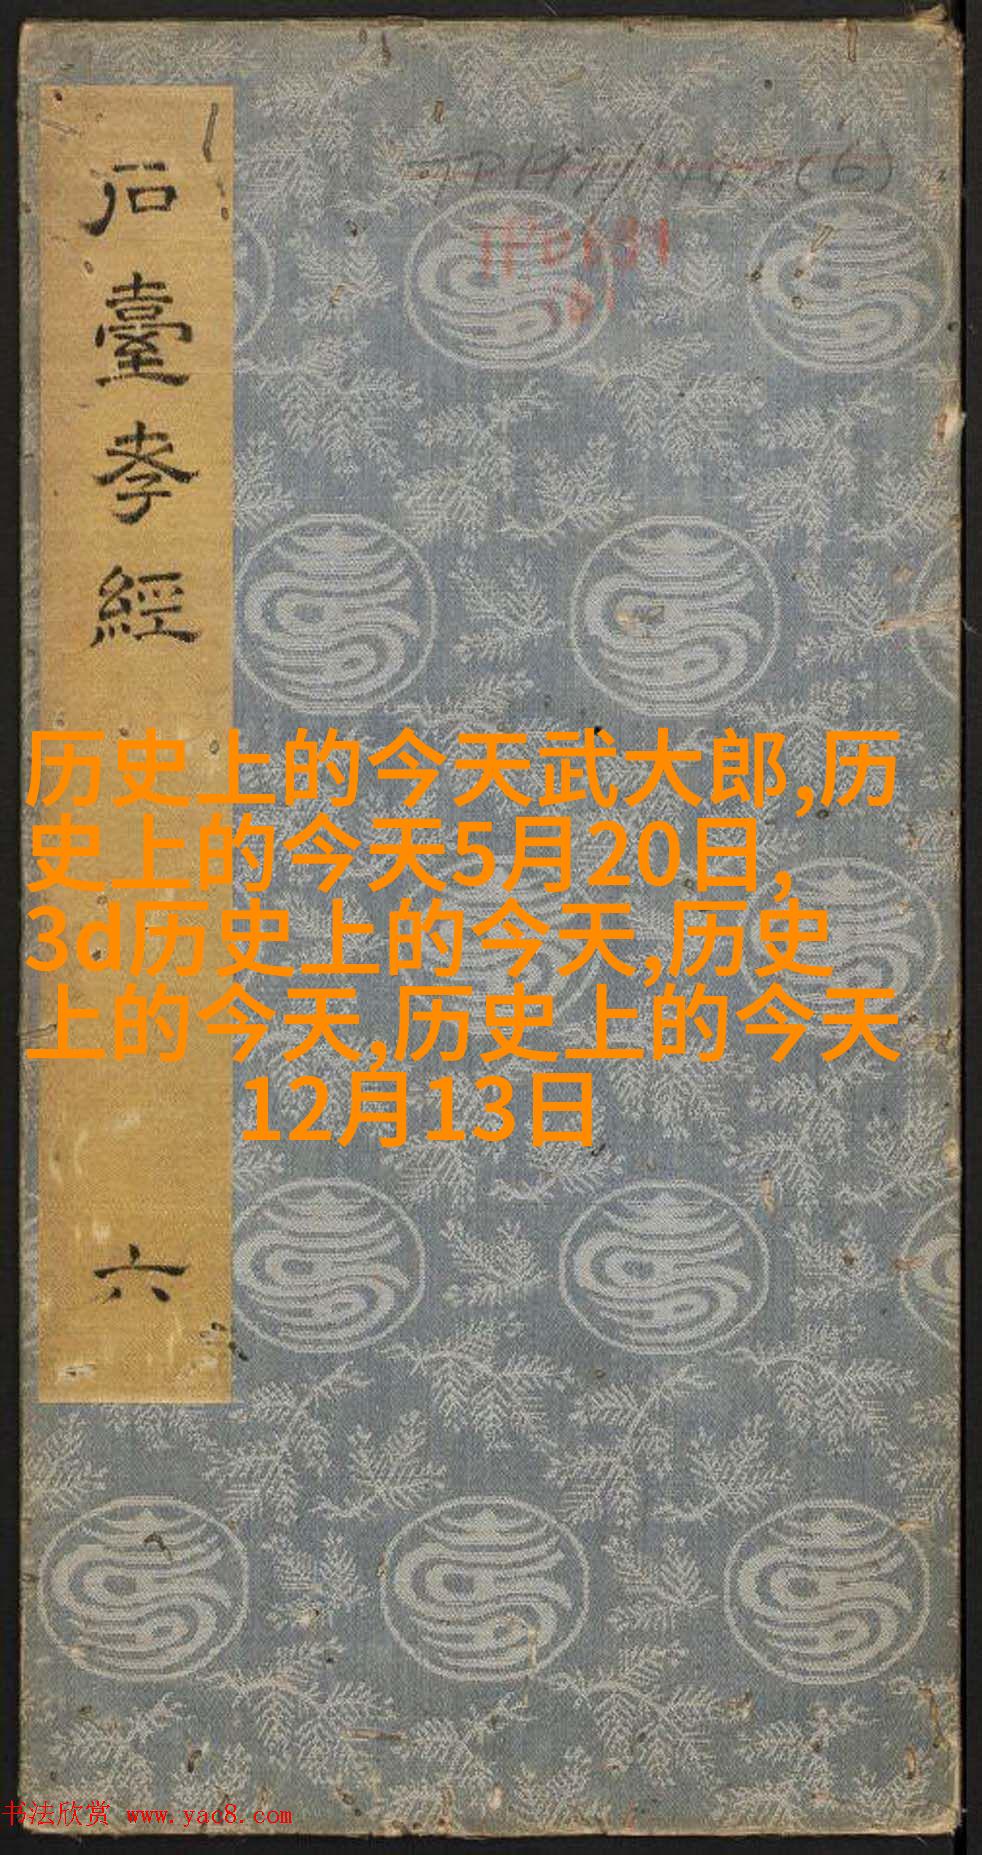 石臺孝經
六
历史上的今天武大郎,历
史上的今天5月20日,
3d历史上的今天,历史
上的今天,历史上的今天
12月13日
书法欣赏 www.yac8.com